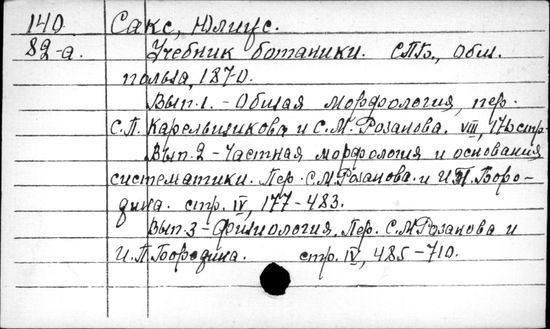 140 Сакс, Юлиус.
82-а. Учебник ботаники. СПБ., Общ.
польза, 1870.
Вып. 1. - Общая морфология, пер.
С.П. Карельщикова и С.М. Розанова. VIII, 176 стр.
Вып. 2 - Частная морфология и основания
систематики. Пер. С.М. Розанова и И.П. Боро-
дина. стр. IV, 177-483.
Вып. 3 - Физиология. Пер. С.М. Розанова и
И.П. Бородина. стр. IV, 485-710.